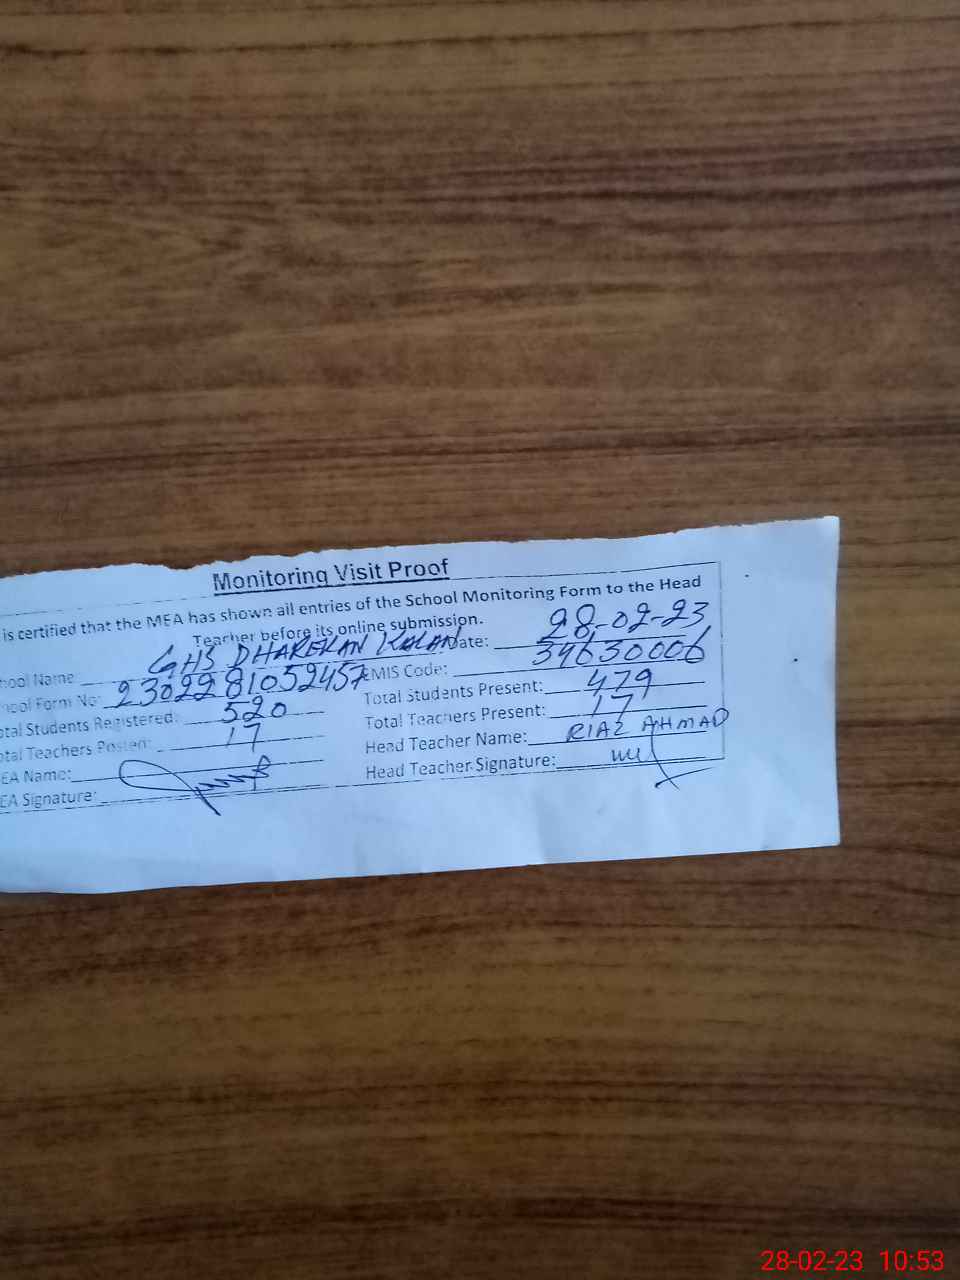 Monitoring Visit Proof
is certified that the MEA has shown all entries of the School Monitoring Form to the Head
Teacher before its online submission.
hool Name GHS DHAREKAN KALAN Date: 28-02-23
hool Form No: 2302281052457 EMIS Code: 34630006
otal Students Registered: 520 Total Students Present: 479
otal Teachers Posted: 17 Total Teachers Present: 17
EA Name: Head Teacher Name: RIAZ AHMAD
EA Signature: Head Teacher Signature:
28-02-23 10:53